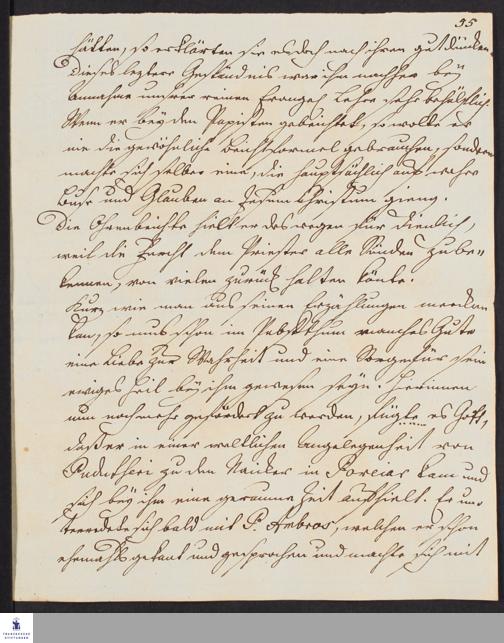 55
hätten, so erklärten sie es doch nach ihren gutdünken.
Dieses leztere Geständnis war ihm nachher bey
Annahme unsrer reinen Evangel. Lehre sehr behülflich.
Wenn er bey den Papisten gebeichtet, so wolte er
nie die gewöhnliche Beichtformel gebrauchen, sondern
machte sich selber eine, die hauptsächlich auf wahre
Buße und Glauben an Jesum Christum gieng.
Die Ohrenbeichte hielt er deswegen für dienlich,
weil die Furcht dem Priester alle Sünden zu be-
kennen, von vielen zurück halten könte.
Kurz wie man aus seinen Erzählungen merken
kan, so mus schon im Pabstthum manches Gute
eine Liebe zur Wahrheit und eine Sorge für sein
ewiges Heil bey ihm gewesen seyn. Hierinnen
nun noch mehr gefördert zu werden, fügte es Gott,
daß er in einer weltlichen Angelegenheit von
Puducheri zu dem Naicker in kam und
sich bey ihm eine geraume Zeit aufhielt. Er un-
terredete sich bald mit P. Ambros, welchen er schon
ehemahls gekant und gesprochen und machte sich mit
FRANCKESCHE
STIFTUNGEN